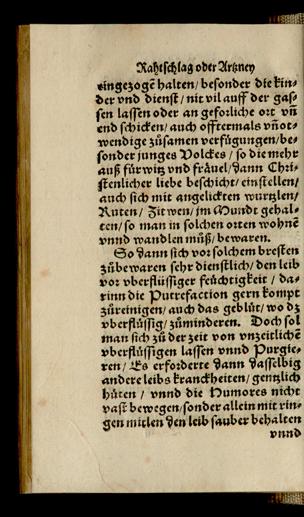 Rahtschlag oder Artzney
eingezogē halten/ besonder die kin-
der vnd dienst/ nit vil auff der gas-
sen lassen oder an geforliche ort vn̄
end schicken/ auch offtermals vn̄ot-
wendige zůsamen verfügungen/ be-
sonder junges Volckes/ so die mehr
auß fürwitz vnd fräuel/ dann Chri-
stenlicher liebe beschicht/ einstellen/
auch sich mit angelickten wurtzlen/
Ruten/ Zitwen/ im Mundt gehal-
ten/ so man in solchen orten wohnē
vnnd wandlen můß/ bewaren.
So dann sich vor solchem bresten
zůbewaren sehr dienstlich/ den leib
vor vberflüssiger feüchtigkeit/ da-
rinn die Putrefaction gern kompt
zůreinigen/ auch das geblüt/ wo dz
vberflüssig/ zůminderen. Doch sol
man sich zů der zeit von vnzeitlichē
vberflüssigen lassen vnnd Purgie-
ren/ Es erforderte dann dasselbig
andere leibs kranckheiten/ gentzlich
hüten/ vnnd die Humores nicht
vast bewegen/ sonder allein mit rin-
gen mitlen den leib sauber behalten
vnnd